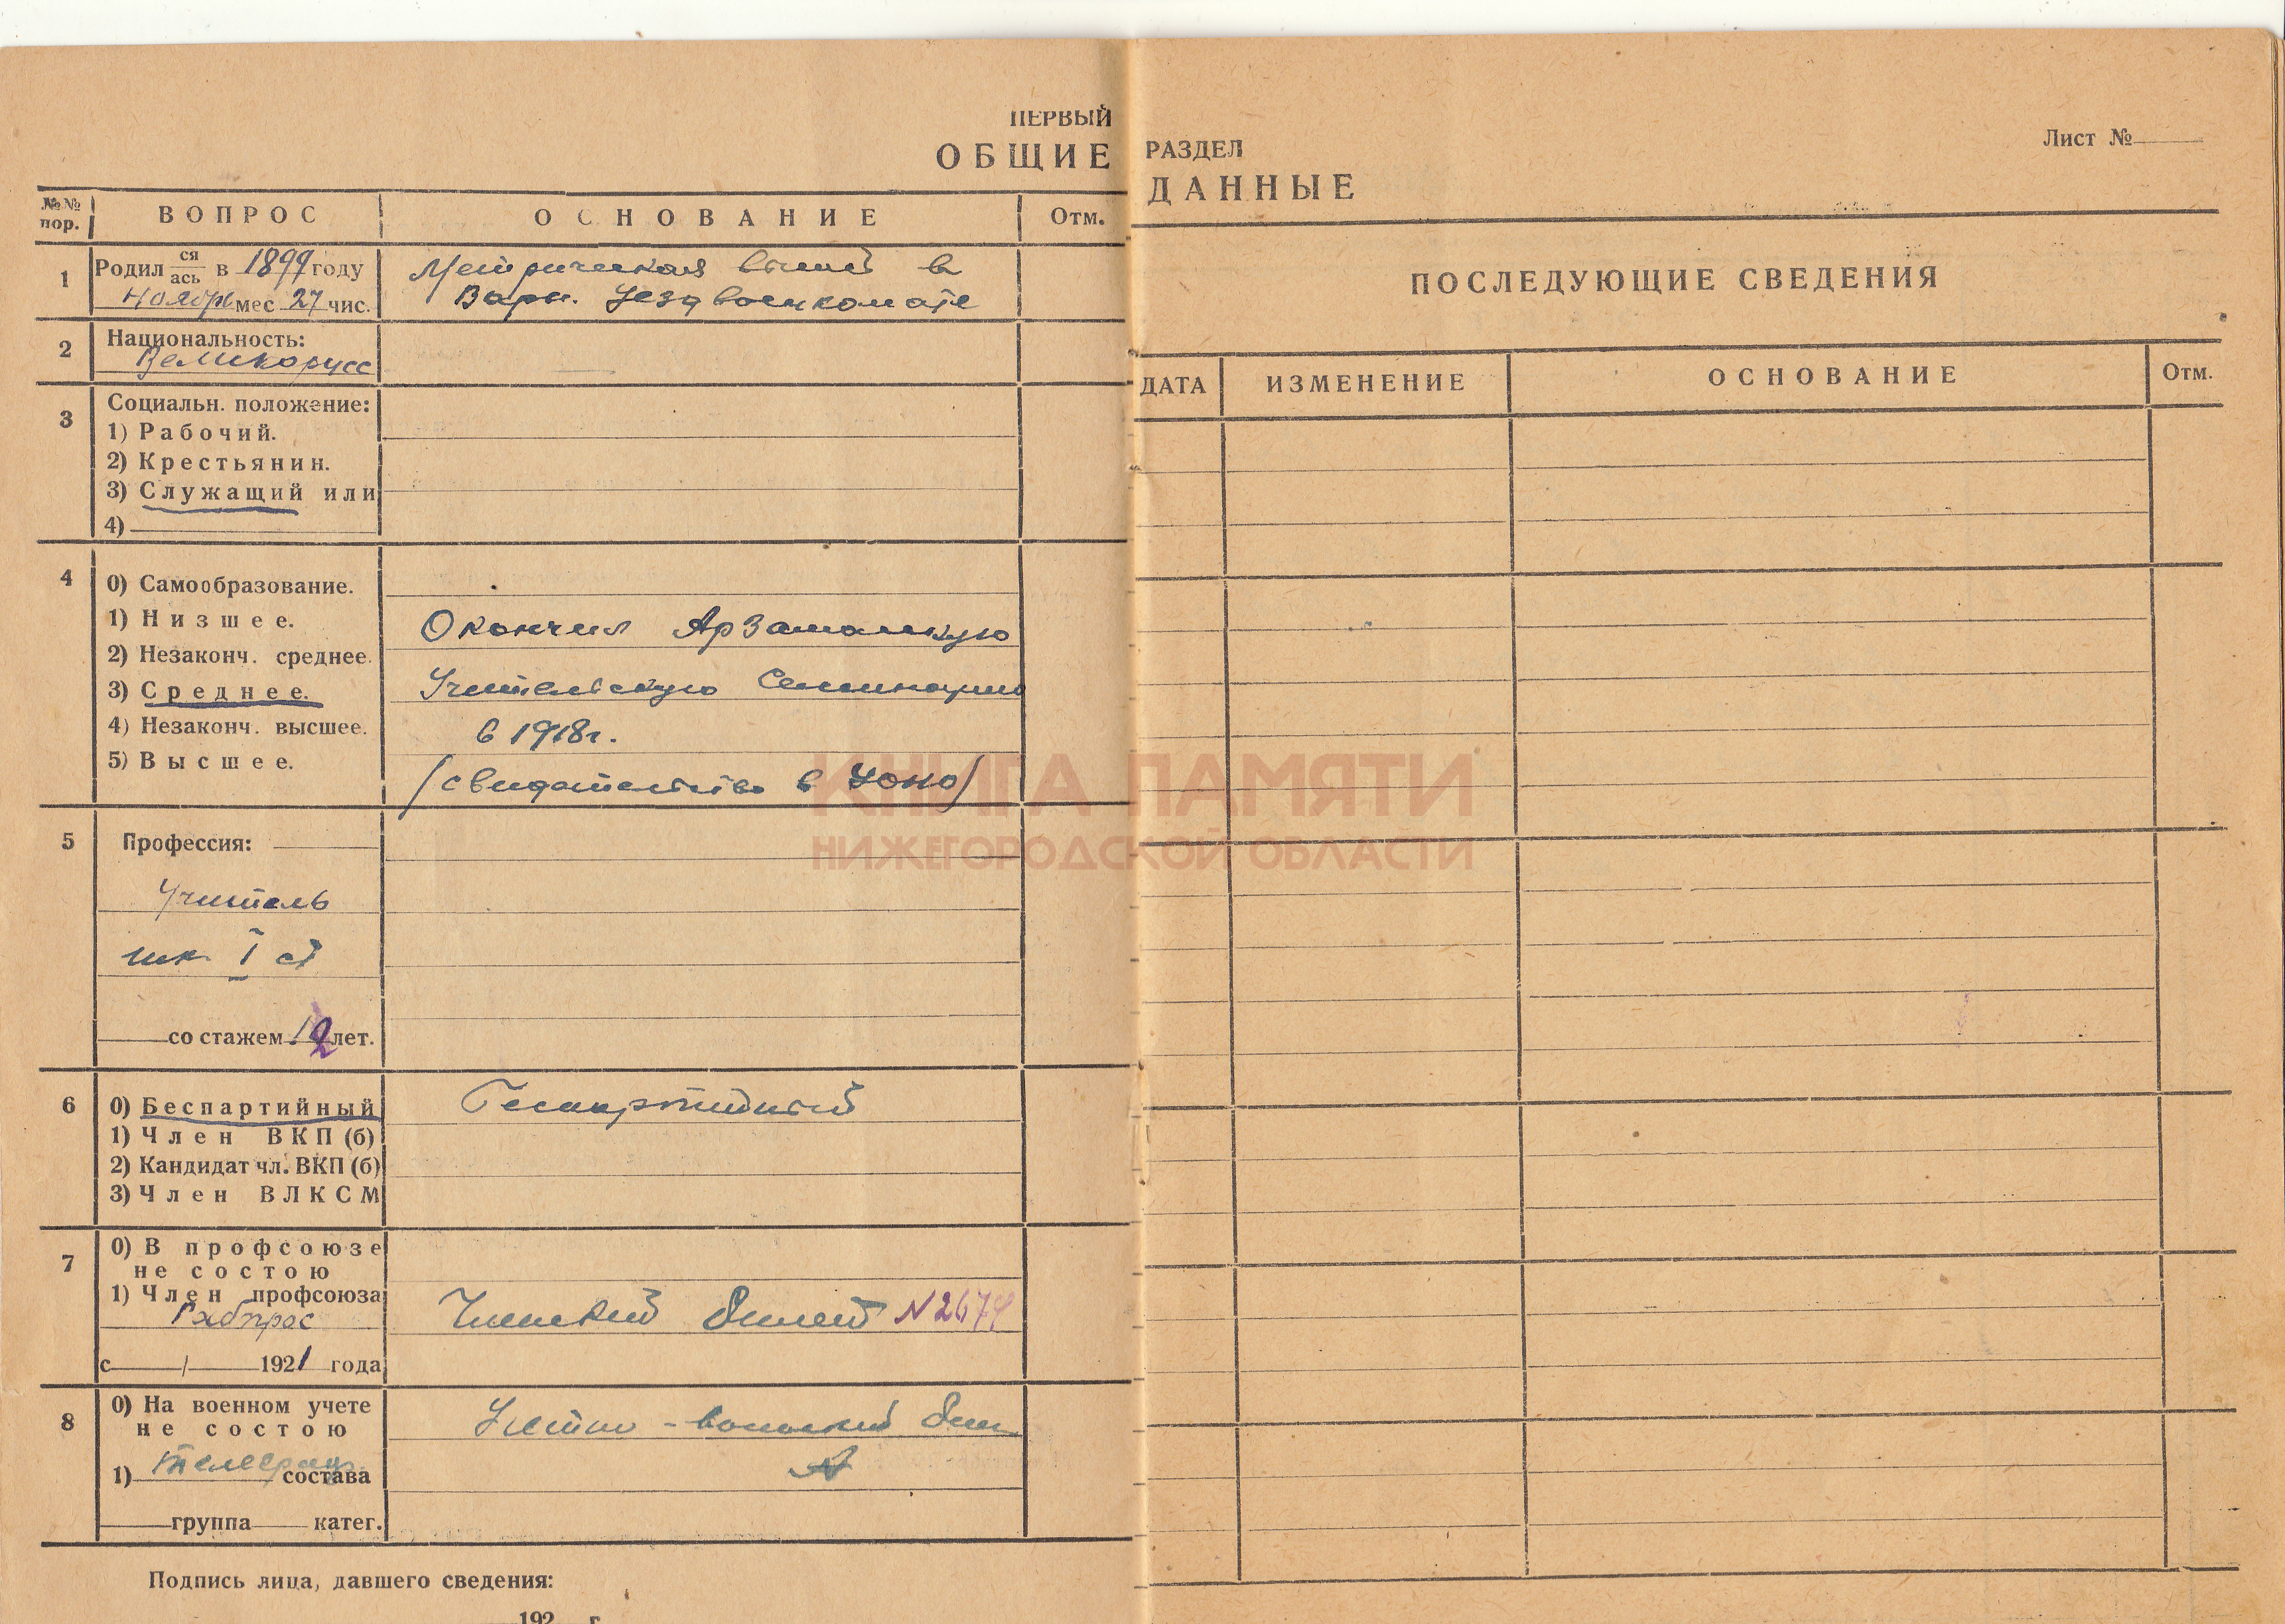 ПЕРВЫЙ РАЗДЕЛ
ОБЩИЕ ДАННЫЕ
Лист №
№№ пор.
ВОПРОС
ОСНОВАНИЕ
Отм.
1
Родил ся/ась в 1899 году
Ноябрь мес 27 чис.
Метрическая
в
Варн. Уезд военкомате
2
Национальность:
Великорусс
3
Социальн. положение:
1) Рабочий.
2) Крестьянин.
3) Служащий или
4)
4
0) Самообразование.
1) Низшее.
2) Незаконч. среднее.
3) Среднее.
4) Незаконч. высшее.
5) Высшее.
Окончил Арзамасскую
Учительскую Семинарию
в 1918 г.
(свидетельство в Уоно)
5
Профессия:
Учитель
шк I ст
со стажем лет.
6
0) Беспартийный
1) Член ВКП (б)
2) Кандидат чл. ВКП (б)
3) Член ВЛКСМ
Беспартийный
7
0) В профсоюзе
не состою
1) Член профсоюза
Рабпрос
с / 1921 года
Членский билет N 2674
8
0) На военном учете
не состою
1) состава
группа катег.
Учетно-воинский бил
N
Подпись лица, давшего сведения:
192 г.
ПОСЛЕДУЮЩИЕ СВЕДЕНИЯ
ДАТА
ИЗМЕНЕНИЕ
ОСНОВАНИЕ
Отм.
КНИГА ПАМЯТИ
НИЖЕГОРОДСКОЙ ОБЛАСТИ